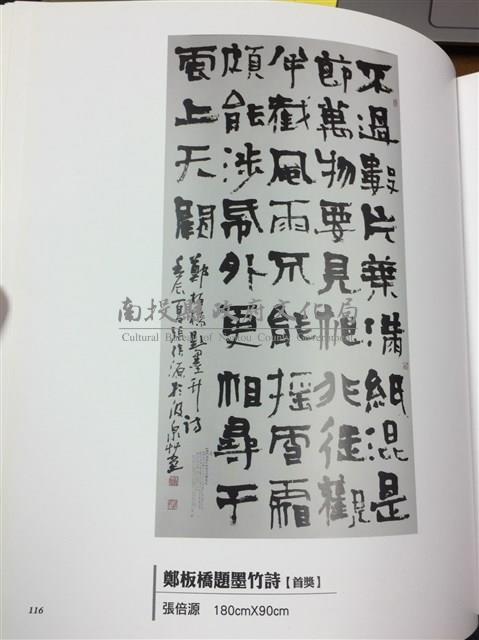 不過數片葉滿紙混是
節萬物要見根非徒觀
半截風雨不能搖雪霜
頗能涉帋外更相尋干
雲上天闕
鄭板橋題墨竹詩
壬辰夏張倍源於泉艸堂
南投縣政府文化局
Cultural Bureau of Nantou County Government
鄭板橋題墨竹詩【首獎】
張倍源 180cmX90cm
116